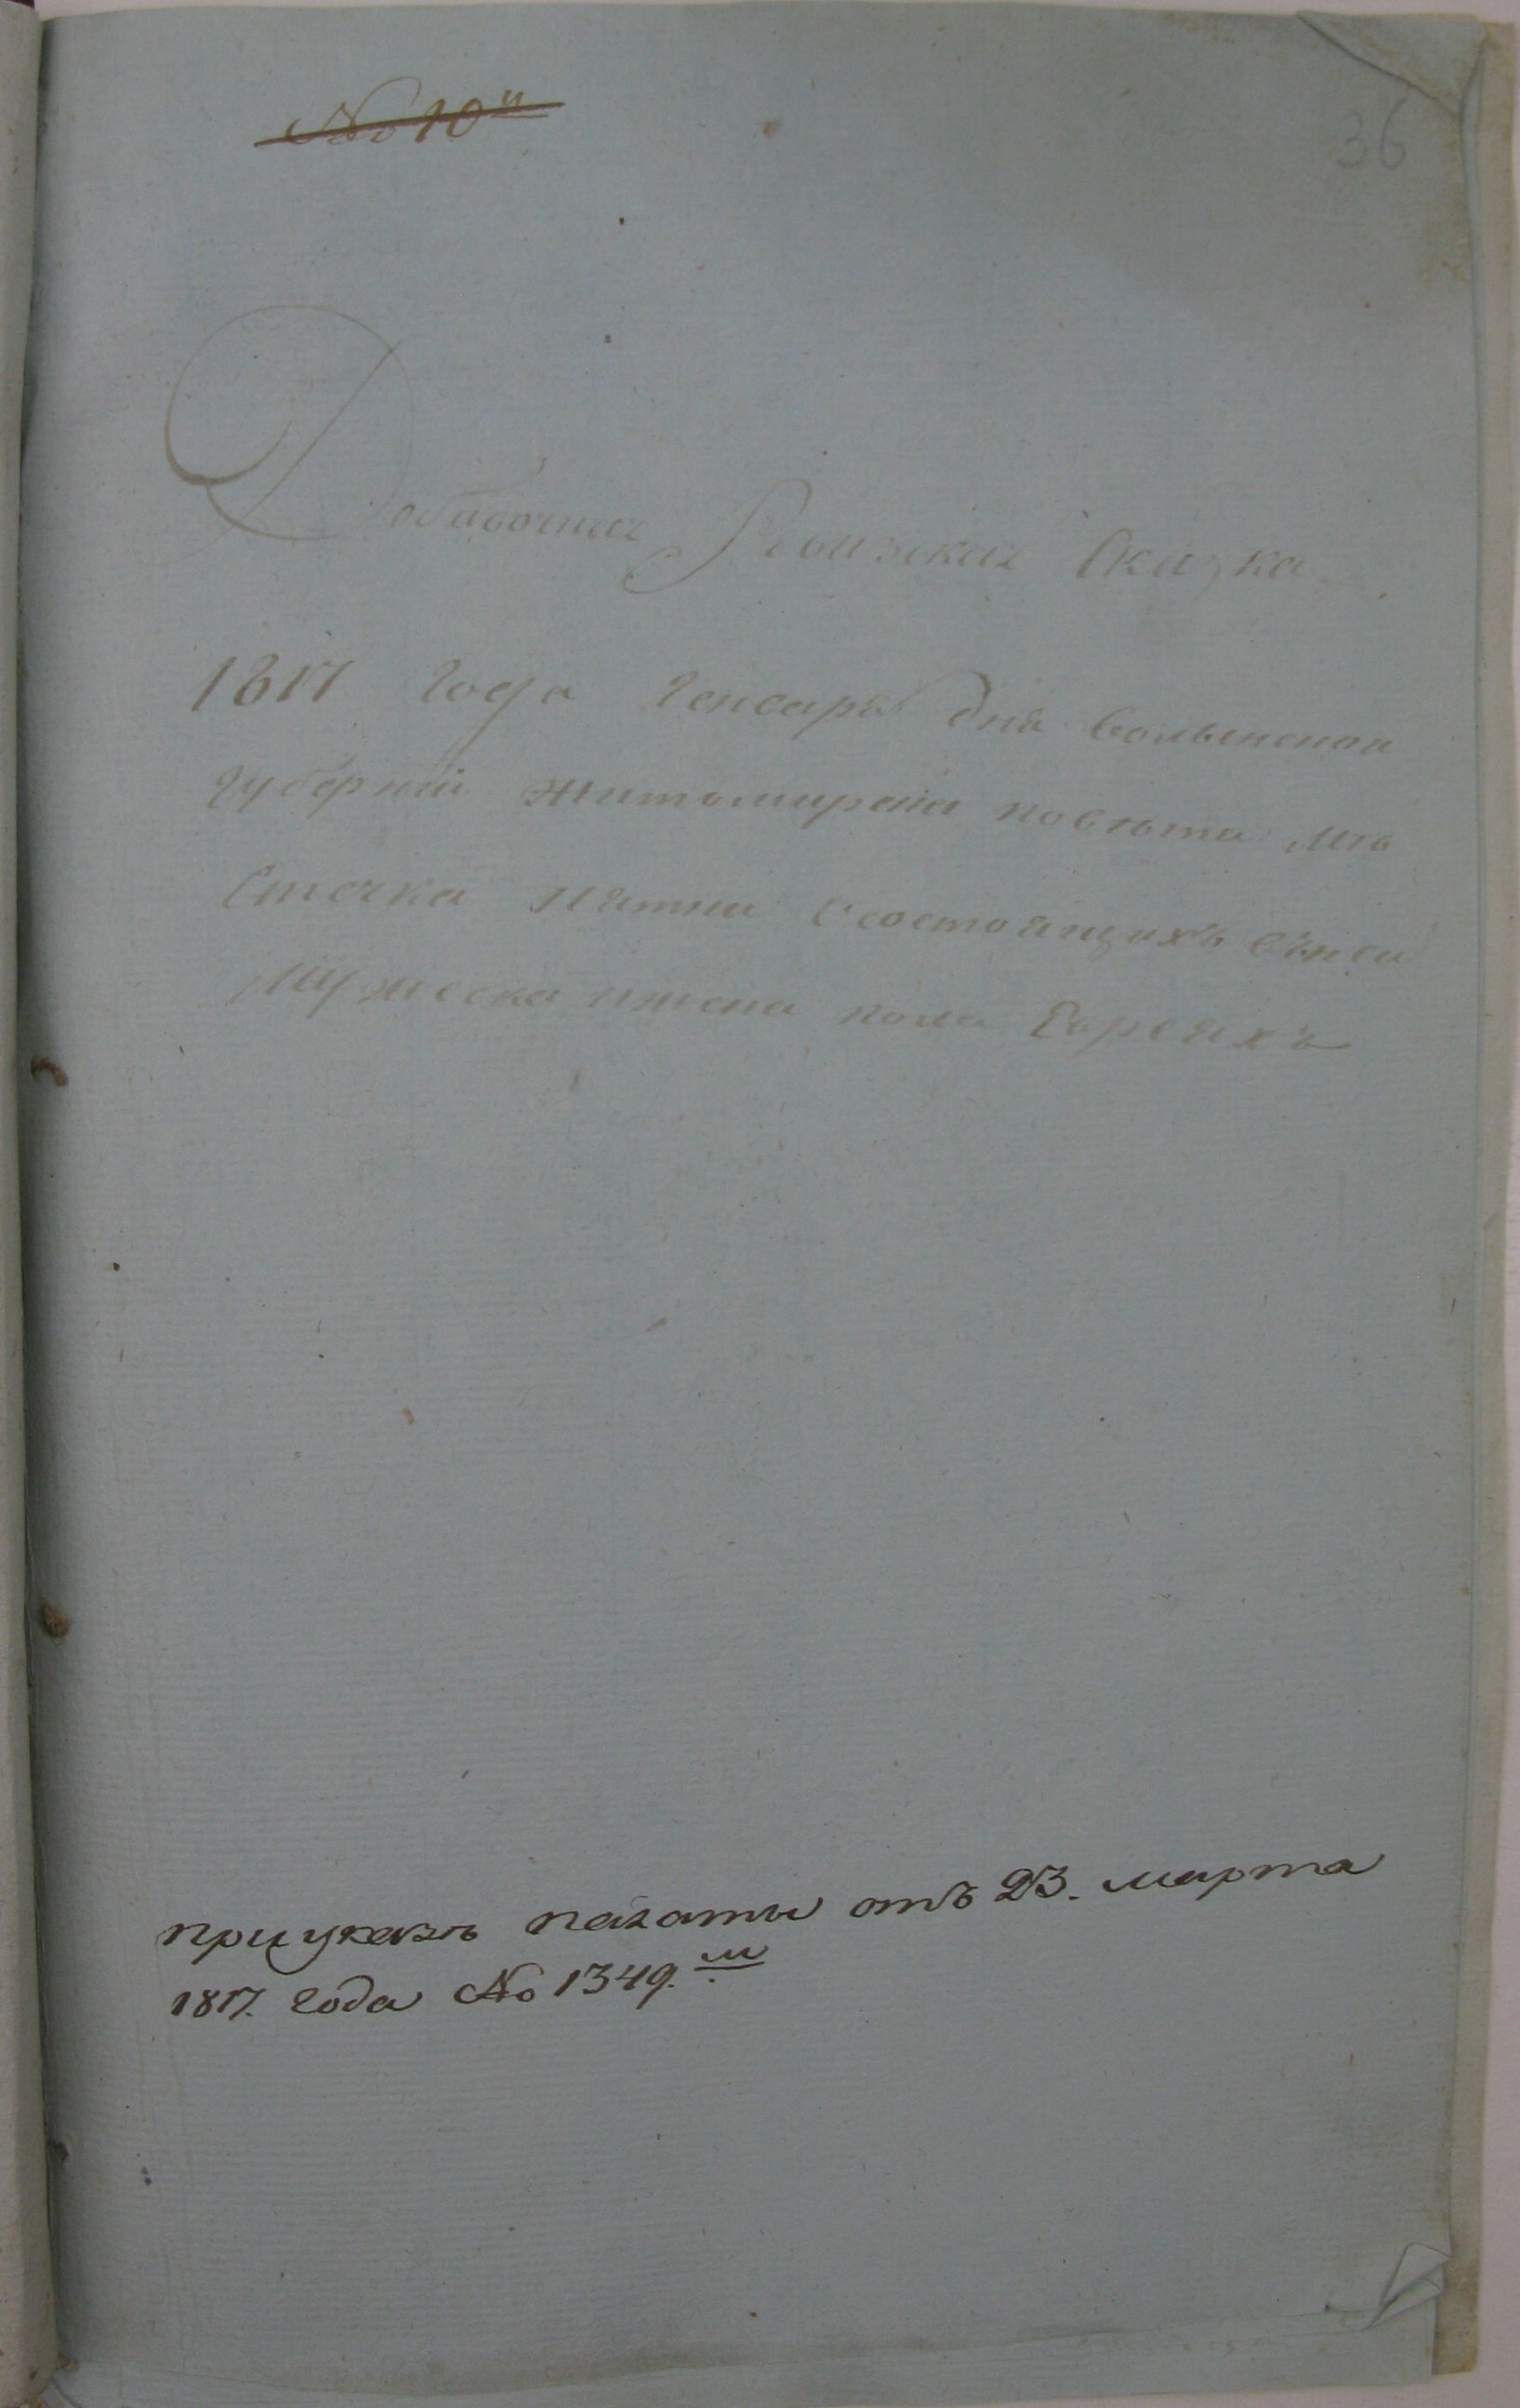 № 10й
36
Добавочная Ревизская Сказка
1817 года Генваря дня Волынской
губернии Житомирска повета мѣ
стечка Пятки о состоящихъ въ нем
мужеска и жена пола Евреяхъ
при указѣ палаты отъ 23. марта
1817. года № 1349.м